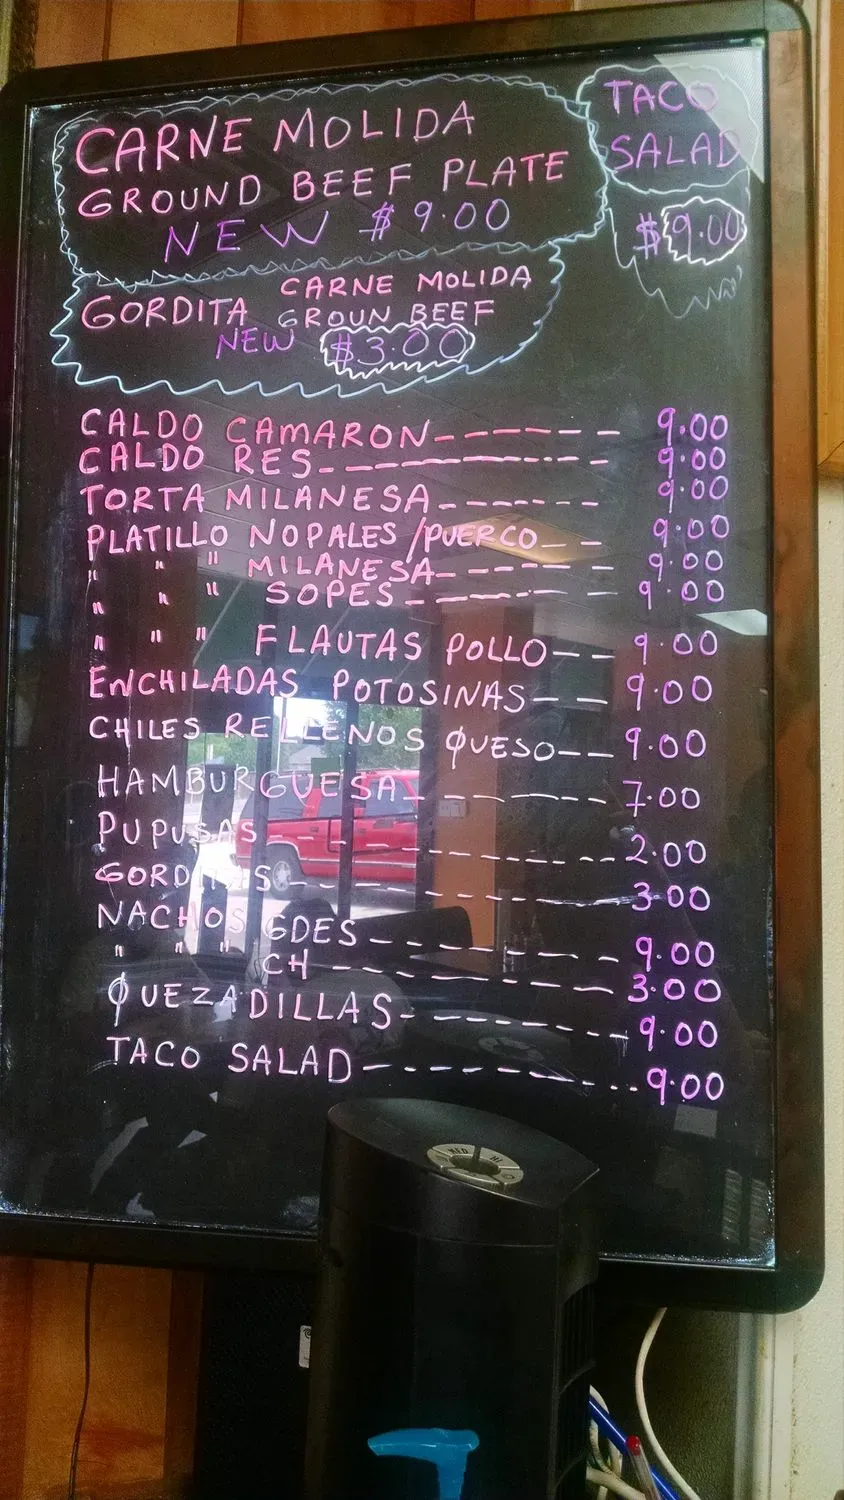 CARNE MOLIDA
GROUND BEEF PLATE
NEW $9.00
TACO
SALAD
$9.00
GORDITA CARNE MOLIDA
GROUN BEEF
NEW $3.00
CALDO CAMARON------- 9.00
CALDO RES--------- 9.00
TORTA MILANESA------ 9.00
PLATILLO NOPALES/PUERCO-- 9.00
" " " MILANESA------ 9.00
" " " SOPES------ 9.00
" " " FLAUTAS POLLO-- 9.00
ENCHILADAS POTOSINAS-- 9.00
CHILES RELLENOS QUESO-- 9.00
HAMBURGUESA------- 7.00
PUPUSAS----------- 2.00
GORDITAS--------- 3.00
NACHOS GDES------- 9.00
" " " CH-------- 3.00
QUEZADILLAS------- 9.00
TACO SALAD-------- 9.00
MED HI